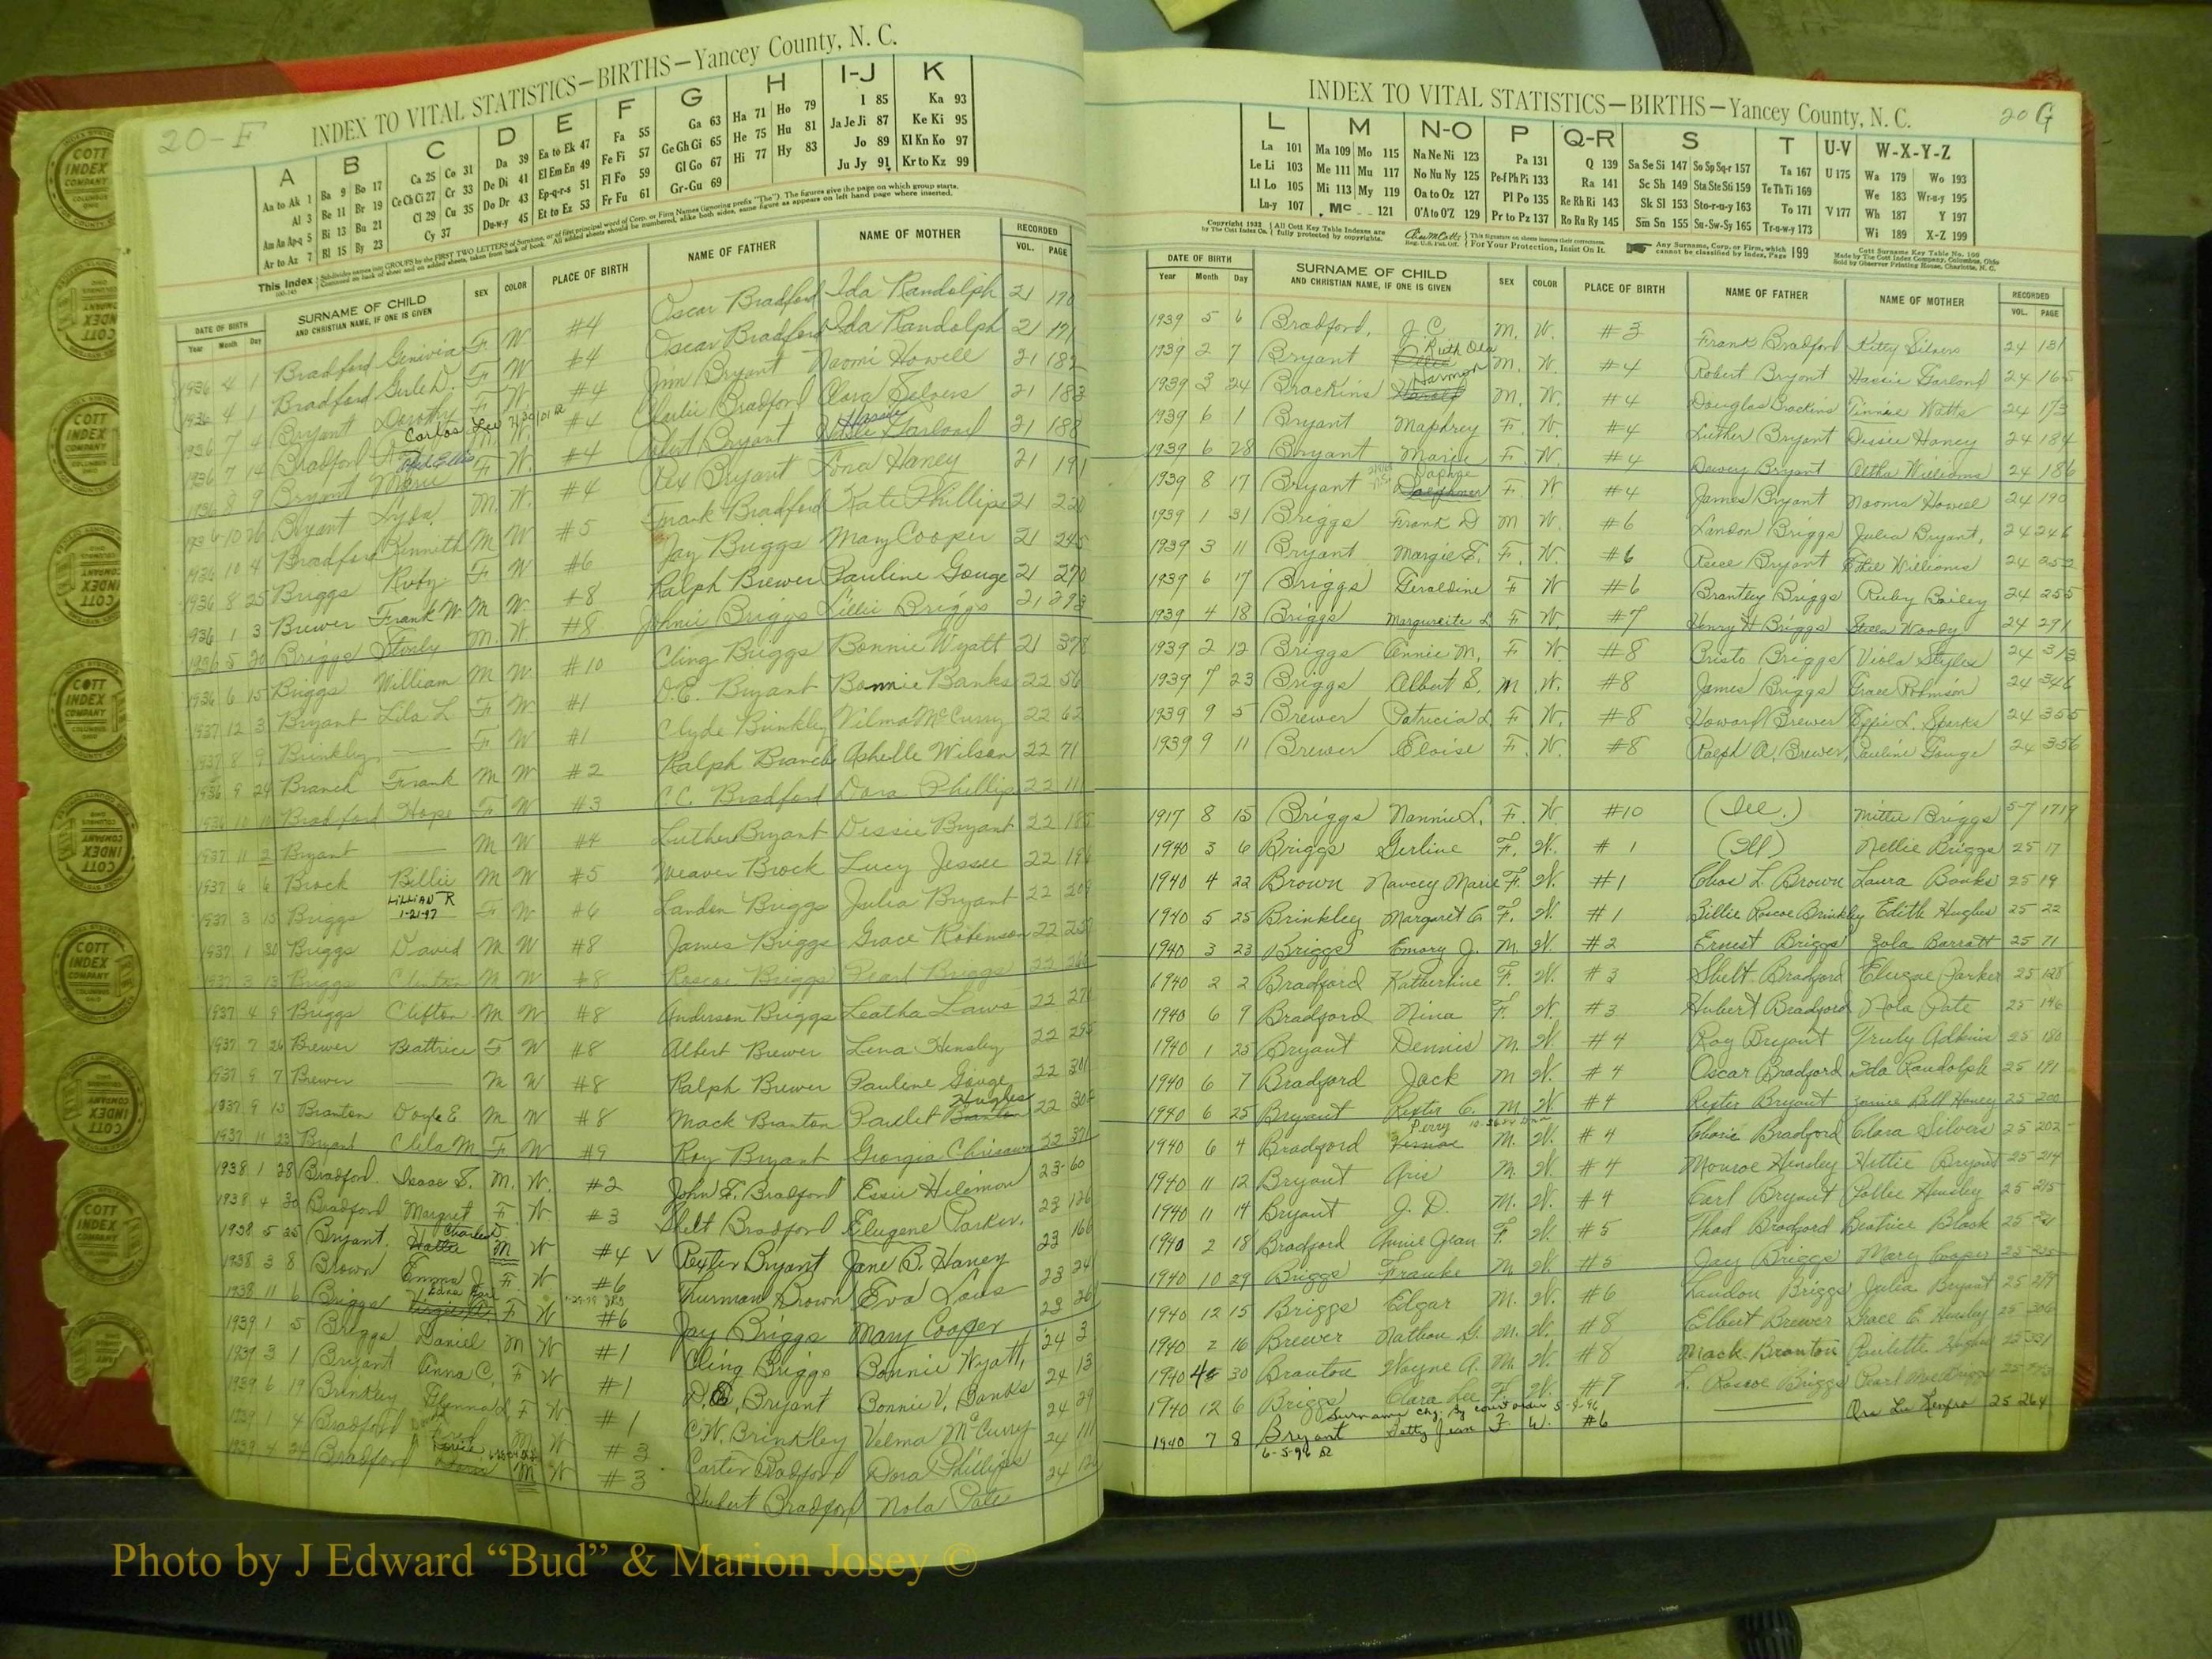 20-F
INDEX TO VITAL STATISTICS—BIRTHS—Yancey County, N. C.
A B C D E F G H I-J K
Aa to Ak 1 Ba 9 Bo 17 Ca 25 Co 31 Da 39 Ea to Ek 47 Fa 55 Ga 63 Ha 71 Ho 79 I 85 Ka 93
Al 3 Be 11 Br 19 Ce Ch Ci 27 Cr 33 De Di 41 El Em En 49 Fe Fi 57 Ge Gh Gi 65 He 75 Hu 81 Ja Je Ji 87 Ke Ki 95
Am An Ap-q 5 Bi 13 Bu 21 Cl 29 Cu 35 Do Dr 43 Ep-q-r-s 51 Fl Fo 59 Gl Go 67 Hi 77 Hy 83 Jo 89 Kl Kn Ko 97
Ar to Az 7 Bl 15 By 23 Cy 37 Du-w-y 45 Et to Ez 53 Fr Fu 61 Gr-Gu 69 Ju Jy 91 Kr to Kz 99
This Index
DATE OF BIRTH SURNAME OF CHILD SEX COLOR PLACE OF BIRTH NAME OF FATHER NAME OF MOTHER RECORDED
Year Month Day AND CHRISTIAN NAME, IF ONE IS GIVEN VOL. PAGE
1936 4 1 Bradford Genivia F W #4 Oscar Bradford Ida Randolph 21 170
1936 4 1 Bradford F W #4 Oscar Bradford Ida Randolph 21 171
1936 7 4 Bryant Dorothy F W #4 Jim Bryant Naomi Howell 21 182
1936 7 14 Bradford Carlos Lee #4 Charlie Bradford Clara Silvers 21 183
1936 8 9 Bryant F W #4 Robert Bryant Hassie Garland 21 188
1936 10 26 Bryant M W #4 Rex Bryant Haney 21 191
1936 10 4 Bradford Kenneth M W #5 Frank Bradford Kate Phillips 21
1936 8 25 Briggs Ruby F W #6 Jay Briggs Mary Cooper 21 245
1936 1 3 Brewer Frank W. M W #8 Ralph Brewer Pauline Gouge 21 270
1936 5 20 Briggs M W #8 Johnie Briggs Lillie Briggs 21 293
1936 6 15 Briggs William M W #10 Cling Briggs Bonnie Wyatt 21 378
1937 12 3 Bryant Lila L F W #1 D.E. Bryant Bonnie Banks 22 56
1937 8 9 Brinkley —— F W #1 Clyde Brinkley Vilma McCurry 22 62
1936 9 24 Branch Frank M W #2 Ralph Branch Ashelle Wilson 22 71
1936 10 10 Bradford Hope F W #3 C.C. Bradford Dora Phillips 22 111
1937 11 2 Bryant —— M W #4 Luther Bryant Dessie Bryant 22 185
1937 6 6 Brock Billie M W #5 Weaver Brock Lucy Jessee 22
LILLIAN R
1937 3 15 Briggs 1-21-97 F W #6 Landon Briggs Julia Bryant 22
1937 1 30 Briggs David M W #8 James Briggs Grace Robinson 22
1937 3 13 Briggs Clinton M W #8 Roscoe Briggs Pearl Briggs 22
1937 4 9 Briggs Clifton M W #8 Anderson Briggs Leatha Laws 22
1937 7 26 Brewer Beattrice F W #8 Albert Brewer Lena Hensley 22
1937 9 7 Brewer —— M W #8 Ralph Brewer Paulene Gouge 22 301
1937 9 15 Branton Doyle E M W #8 Mack Branton Paulet Branton Hughes 22
1937 11 23 Bryant Clila M F W #9 Roy Bryant Georgia Chrisawn 22 371
1938 1 28 Bradford. Isaac S. M. W. #2 John F. Bradford Essie Hilemon 23-60
1938 4 30 Bradford Margret F. W #3 Shelt Bradford Elugene Parker. 23 126
1938 5 25 Bryant. Hattie Charles M W #4 ✓ Rexter Bryant Jane B. Haney 23 166
1938 3 8 Brown Emma J. F. W #6 Thurman Brown Eva Laws 23
1938 11 6 Briggs F W #6 Jay Briggs Mary Cooper 23
1939 1 5 Briggs Daniel M W #1 Cling Briggs Bonnie Wyatt, 24 3
1939 3 1 Bryant Anna C. F W #1 Bryant Bonnie V. Banks 24 13
1939 6 19 Brinkley Glenna L F W #1 C.W. Brinkley Velma McCurry 24 29
1939 4 Bradford M W #3 Carter Bradford Dora Phillips 24 111
1939 4 24 Bradford M W #3 Hubert Bradford Nola Pate 24
20 G
INDEX TO VITAL STATISTICS—BIRTHS—Yancey County, N. C.
L M N-O P Q-R S T U-V W-X-Y-Z
La 101 Ma 109 Mo 115 Na Ne Ni 123 Pa 131 Q 139 Sa Se Si 147 So Sp Sq-r 157 Ta 167 U 175 Wa 179 Wo 193
Le Li 103 Me 111 Mu 117 No Nu Ny 125 Pe-f Ph Pi 133 Ra 141 Sc Sh 149 Sta Ste Sti 159 Te Th Ti 169 We 183 Wr-u-y 195
Ll Lo 105 Mi 113 My 119 Oa to Oz 127 Pl Po 135 Re Rh Ri 143 Sk Sl 153 Sto-r-u-y 163 To 171 V 177 Wh 187 Y 197
Lu-y 107 Mc 121 O'A to O'Z 129 Pr to Pz 137 Ro Ru Ry 145 Sm Sn 155 Su-Sw-Sy 165 Tr-u-w-y 173 Wi 189 X-Z 199
Copyright 1932 by The Cott Index Co. All Cott Key Table Indexes are fully protected by copyrights. For Your Protection, Insist On It. Any Surname, Corp. or Firm, which cannot be classified by Index, Page 199
DATE OF BIRTH SURNAME OF CHILD SEX COLOR PLACE OF BIRTH NAME OF FATHER NAME OF MOTHER RECORDED
Year Month Day AND CHRISTIAN NAME, IF ONE IS GIVEN VOL. PAGE
1939 5 6 Bradford, J.C. M. W. #3 Frank Bradford Kitty Silvers 24 131
1939 2 7 Bryant Ruth Ola M. W. #4 Robert Bryant Hassie Garland 24 165
1939 3 24 Brackins Harold Harmon M. W. #4 Douglas Brackins Tinnie Watts 24 173
1939 6 1 Bryant Maphrey F. W. #4 Luther Bryant Dessie Haney 24 184
1939 6 28 Bryant Marie F. W. #4 Dewey Bryant Altha Williams 24 186
1939 8 17 Bryant Daphne F W #4 James Bryant Naoma Howell 24 190
1939 1 31 Briggs Frank D M W. #6 Landon Briggs Julia Bryant, 24 246
1939 3 11 Bryant Margie E. F. W. #6 Reece Bryant Ethel Williams 24 252
1939 6 17 Briggs Geraldine F W #6 Brantley Briggs Ruby Bailey 24 255
1939 4 18 Briggs Marguerite L F W. #7 Henry H Briggs Stella Woody 24 291
1939 2 12 Briggs Annie M. F W. #8 Cristo Briggs Viola Styles 24 313
1939 7 23 Briggs Albert S. M W. #8 James Briggs Grace Robinson 24 346
1939 9 5 Brewer Patricia L F W. #8 Howard Brewer Effie L. Sparks 24 355
1939 9 11 Brewer Eloise F. W. #8 Ralph A. Brewer, Pauline Gouge 24 356
1917 8 15 Briggs Nannie L. F. W. #10 (Ill.) Mittie Briggs 5-7 1719
1940 3 6 Briggs Gerline F. W. # 1 (Ill) Nellie Briggs 25 17
1940 4 22 Brown Nancey Marie F. W. #1 Chas L. Brown Laura Banks 25 19
1940 5 25 Brinkley Margaret C F. W. #1 Billie Roscoe Brinkley Edith Hughes 25 22
1940 3 23 Briggs Emory J. M. W. #2 Ernest Briggs Zola Barratt 25 71
1940 2 2 Bradford Katherline F. W. #3 Shelt Bradford Elugae Parker 25 128
1940 6 9 Bradford Nina F. W. #3 Hubert Bradford Nola Pate 25 146
1940 1 25 Bryant Dennis M. W. #4 Roy Bryant Truly Adkins 25 180
1940 6 7 Bradford Jack M W. #4 Oscar Bradford Ida Randolph 25 191
1940 6 25 Bryant Rexter C. M W. #4 Rexter Bryant Janie Bell Haney 25 200
1940 6 4 Bradford Vernon Perry M. W. #4 Charie Bradford Clara Silvers 25 202
1940 11 12 Bryant Aris M. W. #4 Monroe Hensley Hettie Bryant 25 214
1940 11 14 Bryant J. D. M. W. #4 Carl Bryant Pollie Hensley 25 215
1940 2 18 Bradford Annie Jean F. W. #5 Thad Bradford Beatrice Black 25
1940 10 29 Briggs Franke M. W. #5 Jay Briggs Mary Cooper 25
1940 12 15 Briggs Edgar M. W. #6 Landon Briggs Julia Bryant 25 279
1940 2 16 Brewer Nathan G. M. W. #8 Elbert Brewer Grace E. Hensley 25 306
1940 4 30 Branton Wayne A. M. W. #8 Mack Branton Paulette Hughes 25 331
1940 12 6 Briggs Clara Lee F. W. #9 L. Roscoe Briggs Pearl Mae Briggs 25
Surname chg. By court order 5-9-96
1940 7 8 Bryant Betty Jean F. W. #6 —— Ora Lee Renfro 25 264
6-5-96
Photo by J Edward “Bud” & Marion Josey ©